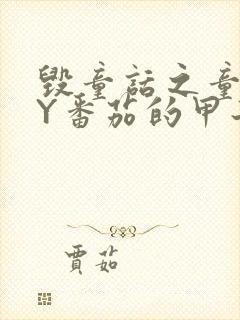 毁童话之童
丫番茄的甲
贾茹